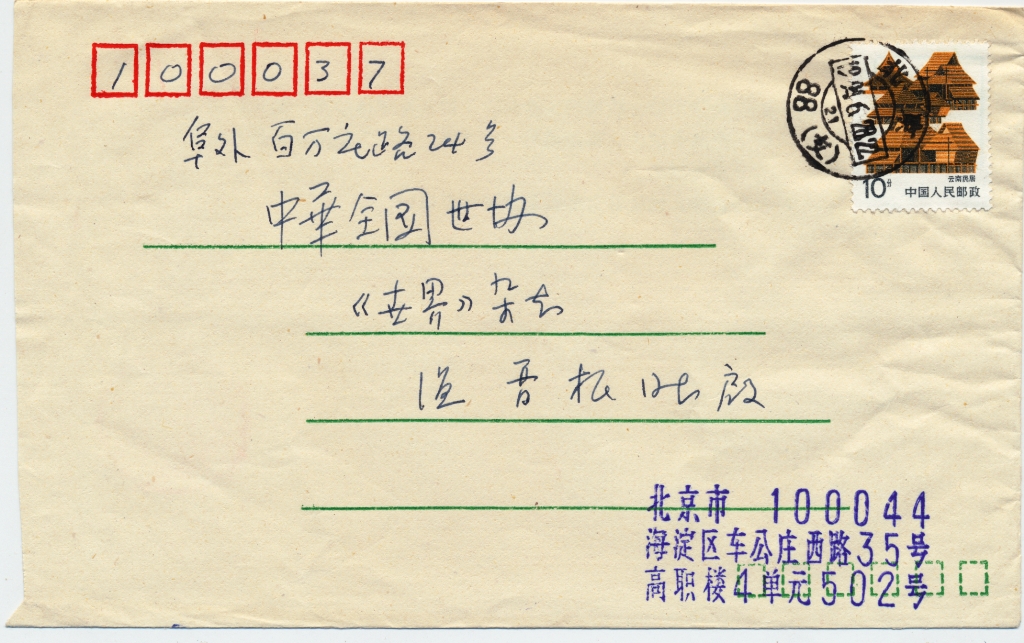 100037
阜外 百万庄路24号
中華全國世协
《世界》杂志
晋根 启
北京
1994.6.28.22
21
88(支)
云南民居
10分 中国人民邮政
北京市 100044
海淀区车公庄西路35号
高职楼4单元502号